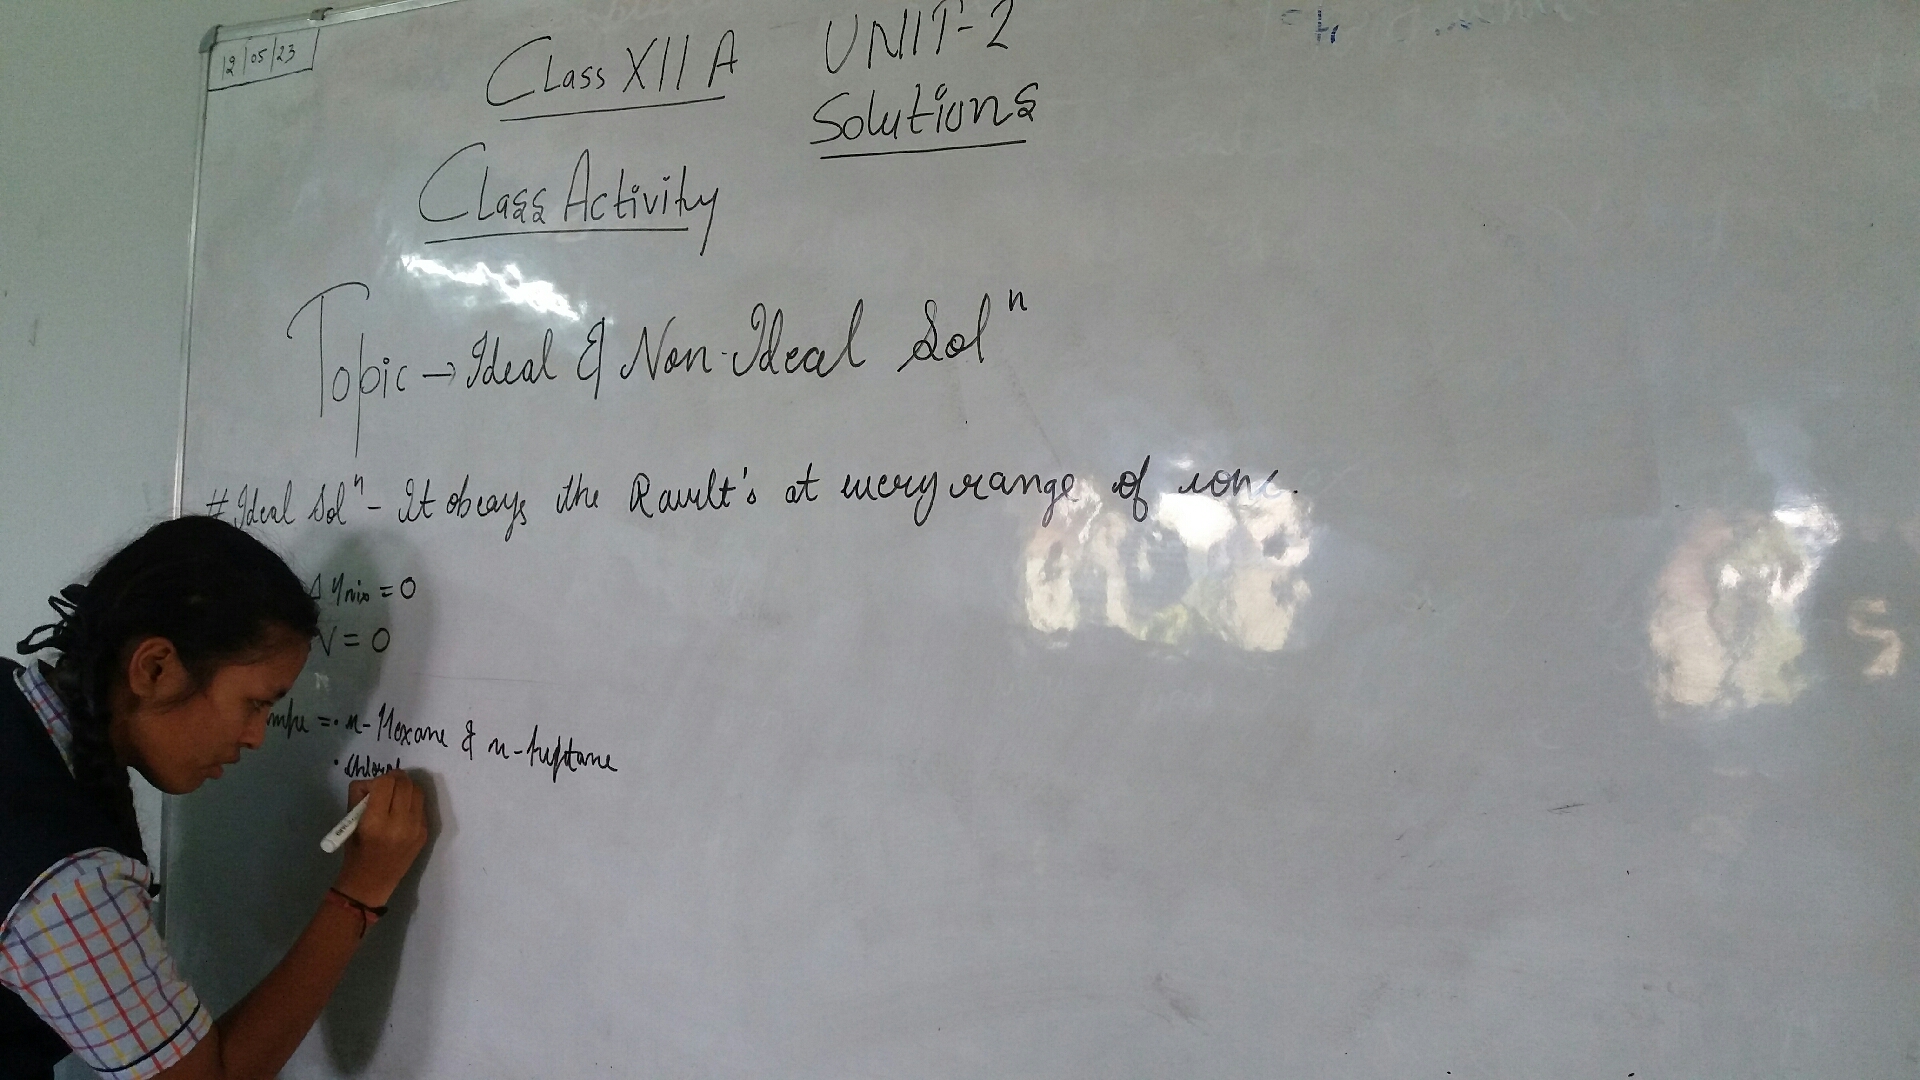 12/05/23
Class XII A
UNIT-2
Solutions
Class Activity
Topic → Ideal & Non-Ideal Solⁿ
# Ideal Solⁿ - It obeays the Rault's at every range of conc.
= 0
V = 0
= • n-Hexane & n-heptane